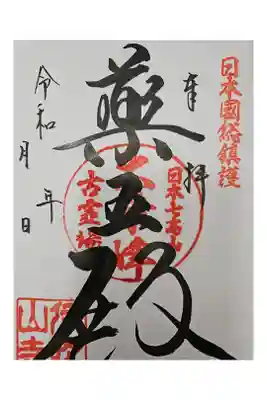 日本國総鎮護
奉拝
薬王殿
日本七高山
古霊場
令和 年 月 日
山寺